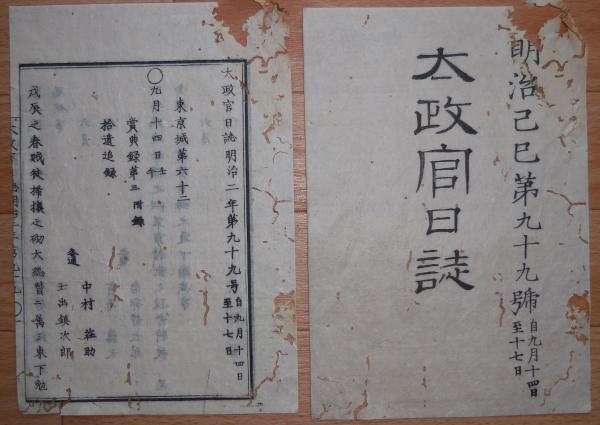 明治己巳第九十九號 自九月十四日 至十七日
太政官日誌
太政官日誌明治二年第九十九号 自九月十四日 至十七日
東京城第六十二
○九月十四日 壬午
賞典録第三 附録
拾遺追録
各通
中村 莊助
玉出鎮次郎
戊辰之春賊徒掃攘之砌大總督
東下勉